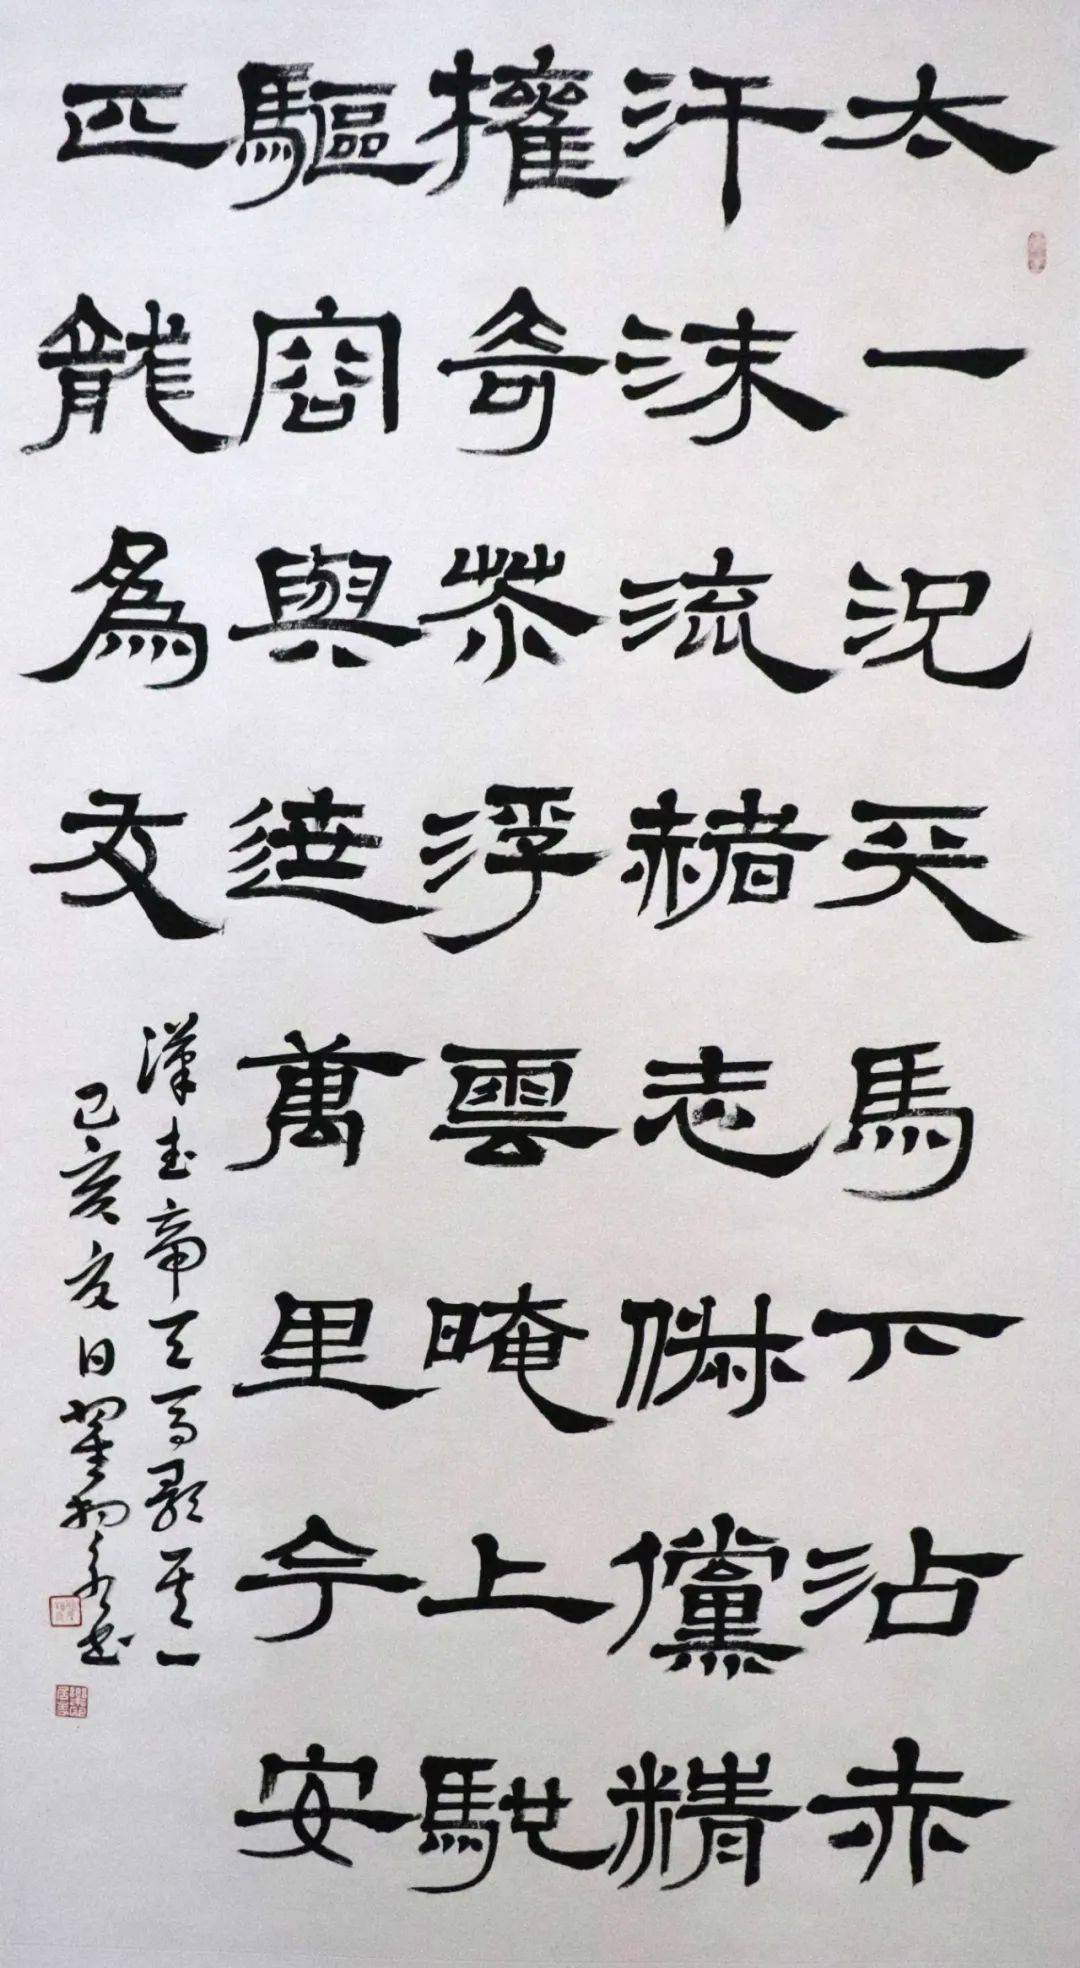 太一況天馬下沾赤
汗沫流赭志俶儻精
權奇苶浮雲晻上馳
驅容與迣萬里今安
匹龍爲友
漢武帝天馬歌其一
己亥夏日翟書